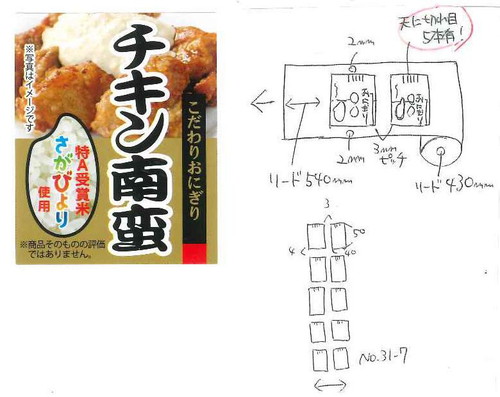 ※写真はイメージです
チキン南蛮
こだわりおにぎり
特A受賞米
さがびより
使用
※商品そのものの評価
ではありません。
天に切れ目
5本有!
2mm
おにぎり
おにぎり
2mm
3mm
ピッチ
リード540mm
リード430mm
3
50
4
40
No.31-7